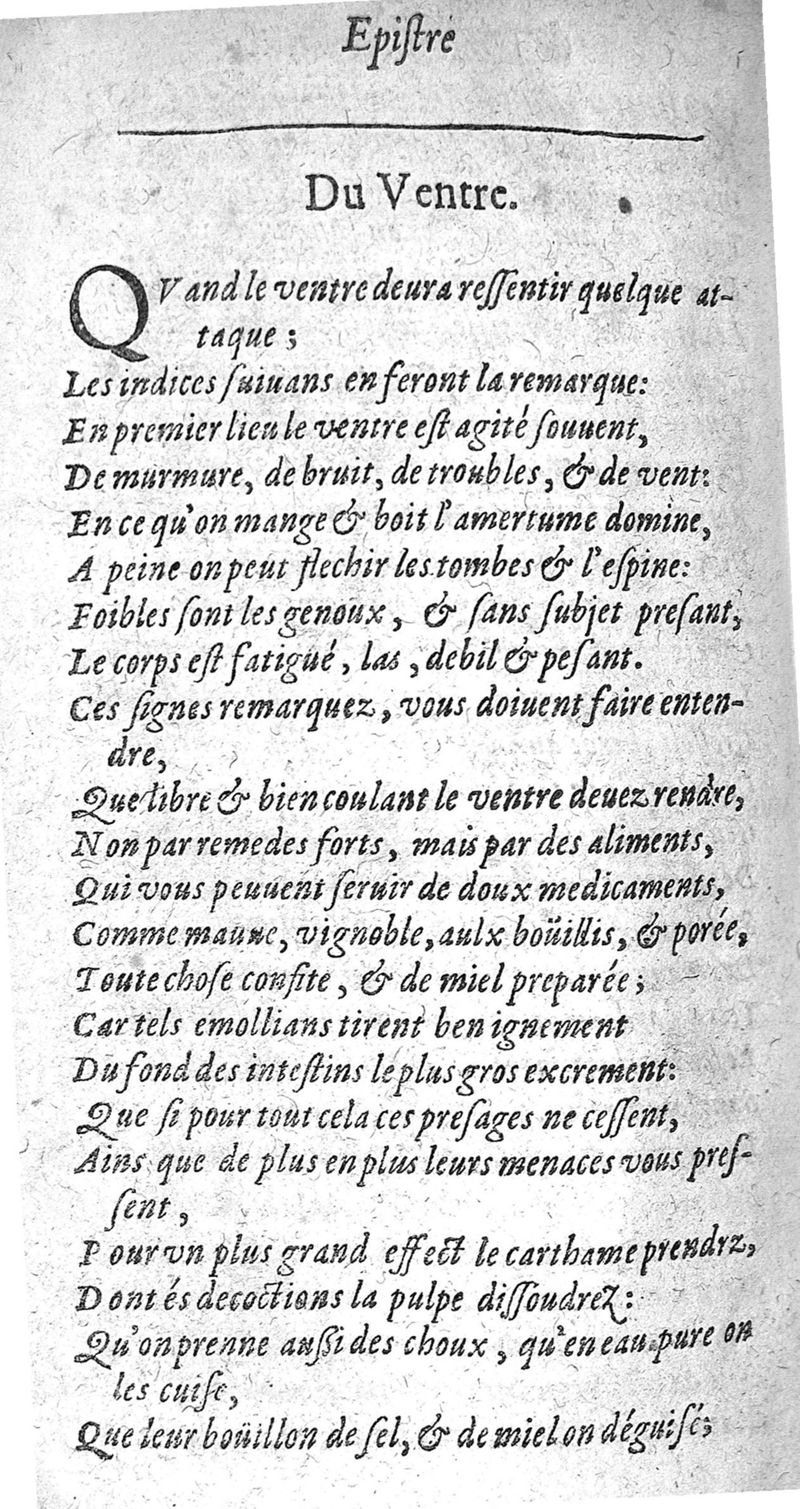 Epiſtre
Du Ventre.
QVand le ventre deura reſſentir quelque at-
taque ;
Les indices ſuiuans en feront la remarque:
En premier lieu le ventre eſt agité ſouuent,
De murmure, de bruit, de troubles, & de vent:
En ce qu'on mange & boit l'amertume domine,
A peine on peut flechir les tombes & l'eſpine:
Foibles ſont les genoux, & ſans ſubjet preſant,
Le corps eſt fatigué, las, debil & peſant.
Ces ſignes remarquez, vous doiuent faire enten-
dre,
Que libre & bien coulant le ventre deuez rendre,
Non par remedes forts, mais par des aliments,
Qui vous peuuent ſeruir de doux medicaments,
Comme mauue, vignoble, aulx boüillis, & porée,
Toute choſe confite, & de miel preparée;
Car tels emollians tirent benignement
Du fond des inteſtins le plus gros excrement:
Que ſi pour tout cela ces preſages ne ceſſent,
Ains que de plus en plus leurs menaces vous preſ-
ſent,
Pour vn plus grand effect le carthame prendrz,
Dont és decoctions la pulpe diſſoudrez:
Qu'on prenne auſſi des choux, qu'en eau pure on
les cuiſe,
Que leur boüillon de ſel, & de miel on déguiſé;